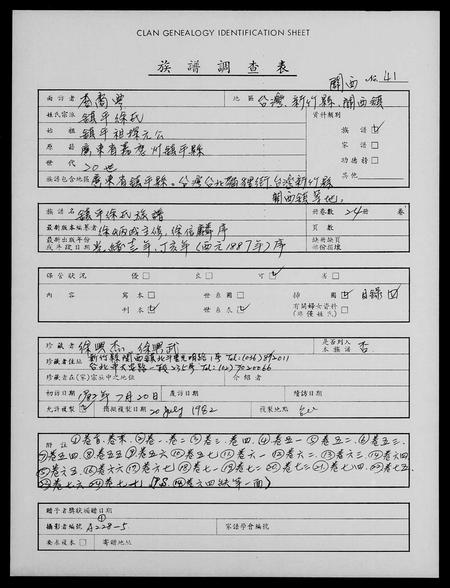 CLAN GENEALOGY IDENTIFICATION SHEET
族譜調查表
關西 No. 41
面訪者 地區 台灣、新竹縣、關西鎮
姓氏宗派 鎮平徐氏 資料類別
始祖 鎮平祖探元公 族譜 ☑
原籍 廣東省嘉應州鎮平縣 家譜 □
世代 20世 功德榜 □
族譜包含地區 廣東省鎮平縣。台灣台北 街、台灣新竹縣 其他
關西鎮等地。
族譜名 鎮平徐氏族譜 冊卷數 24冊 卷
最新版本編纂者 徐炳成主修、徐信麟序 頁數
最新出版年份或手稿日期 光緒 年、丁亥年(西元1887年)序 缺冊缺頁部份損壞
保管狀況 優 □ 良 □ 可 ☑ 劣 □
內容 寫本 □ 世系圖 □ 抄圖 ☑ 目錄 ☑
刊本 ☑ 世系表 ☑ 有關婦女資料(非僅姓氏) □
珍藏者 徐興杰、徐興武 是否列入本族譜 否
珍藏者住址 新竹縣關西鎮北斗里光明路1號 Tel:(036)892011
台北市大安路一段235號 Tel:(02)7020066
珍藏者在(家)宗系中之地位 介紹者
初訪日期 1982年7月20日 庄訪日期 續訪日期
允許複製 ☑ 攝擬複製日期 20 July 1982 複製地點
附註 ①卷首、卷末、②卷一、卷二 ③卷三、卷四、④卷五一 ⑤卷五二、⑥卷五三、
⑦卷五四、⑧卷五五 ⑨卷五六 ⑩卷五七 ⑪卷六一 ⑫卷六二、⑬卷六三、⑭卷六四
⑮卷六五、⑯卷六六 ⑰卷六七 ⑱卷七一 ⑲卷七二 ⑳卷七三 ㉑卷七四、㉒卷七五、
㉓卷七六、㉔卷七七
贈予者獎狀頒贈日期
攝影者編號 A228-5 家譜學會編號
要求複本 □ 寄贈地址